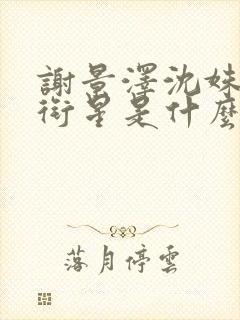 謝景澤沈妹
衔星是什麼
落月停雲